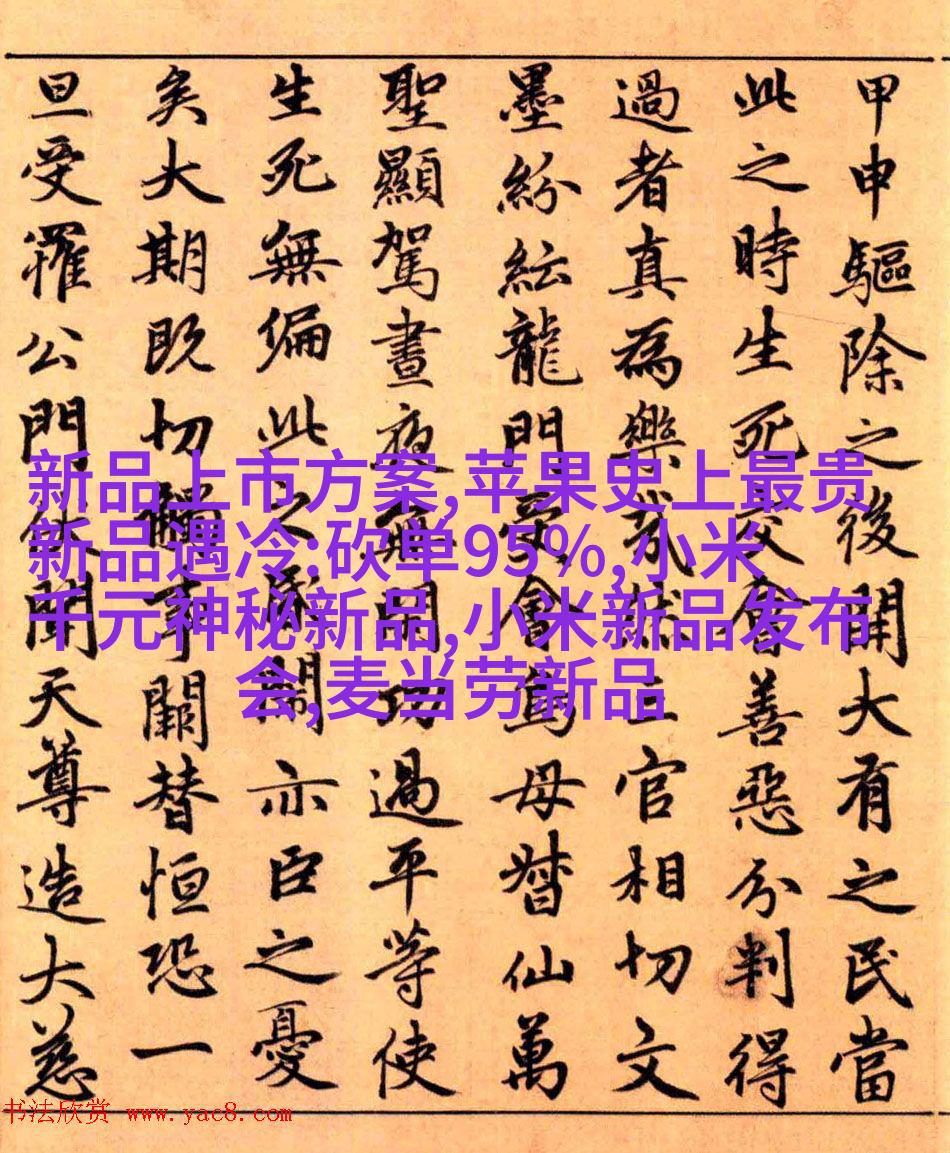 甲申驅除之後開大有之民當
此之時生死交會善惡分判得
過者真為樂哉上官相切文
墨紛紜龍門受會鳥母督仙萬
聖顯駕晝夜無閑功過平等使
生死無偏此之開亦臣之憂
矣大期既切觸事闕替恒恐一
旦受罹公門伏聞天尊造大慈
新品上市方案,苹果史上最贵
新品遇冷:砍单95%,小米
千元神秘新品,小米新品发布
会,麦当劳新品
书法欣赏 www.yac8.com